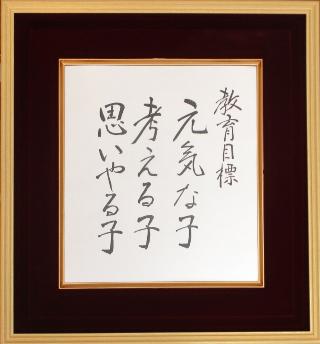 教育目標
元気な子
考える子
思いやる子